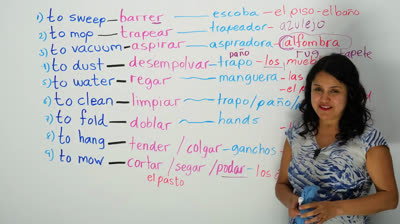 1) to sweep — barrer — escoba — el piso - el baño
2) to mop — trapear — trapeador — azulejo
3) to vacuum — aspirar — aspiradora — alfombra
rug tapete
paño
4) to dust — desempolvar — trapo — los
5) to water — regar — manguera — las
6) to clean — limpiar — trapo/paño/
7) to fold — doblar — hands
8) to hang — tender / colgar — ganchos
9) to mow — cortar / segar / podar — los
el pasto